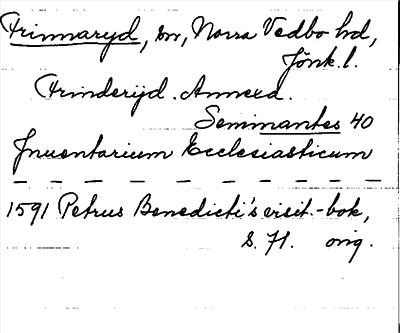 Frinnaryd, sn, Norra Vedbo hd,
Jönk.l.
Frinderijd. Annexa.
Seminantes 40
Inuentarium Ecclesiasticum
1591 Petrus Benedicti's visit.-bok,
s. 71. orig.